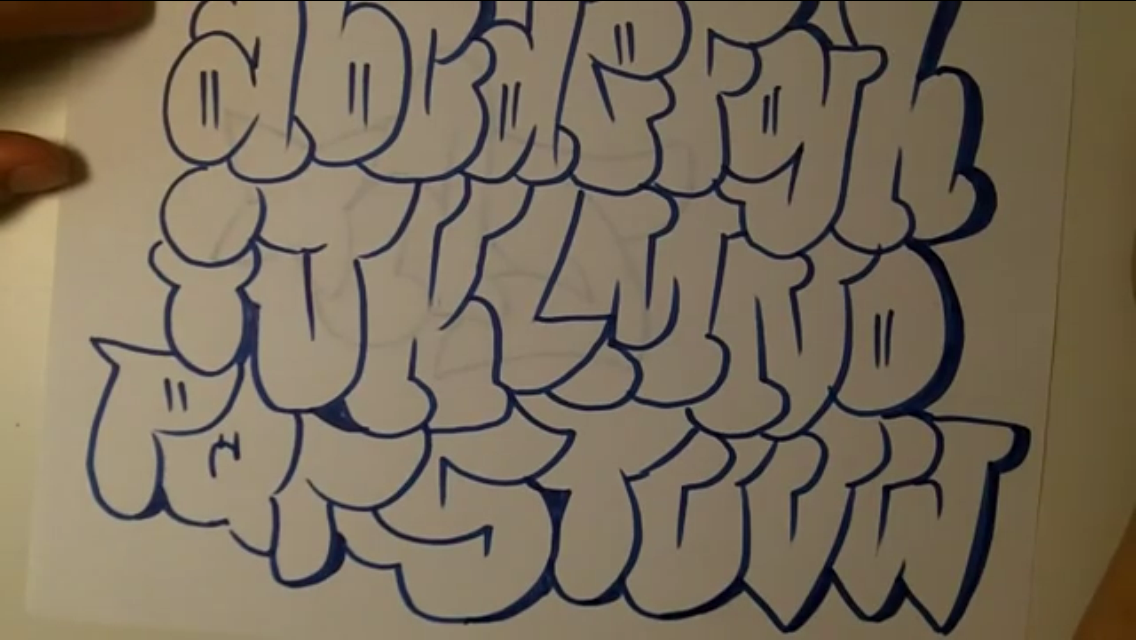 abcdefgh
iJKLMNO
PqrSTUVW